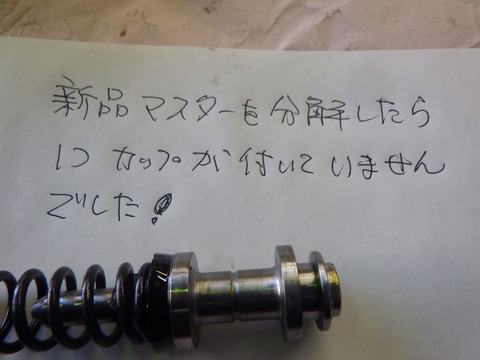 新品マスターを分解したら
1つカップが付いていません
でした!